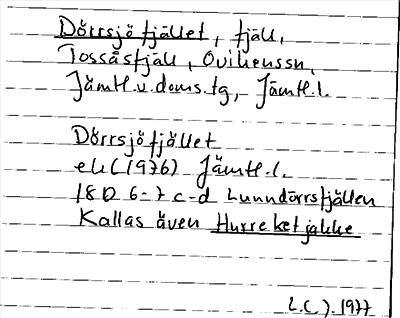 Dörrsjöfjället, fjäll,
Tossåsfjäll, Ovikenssn,
Jämtl.v.doms.tg, Jämtl.l.
Dörrsjöfjället
ek(1976) Jämtl.l.
18D 6-7 c-d Lunndörrsfjällen
Kallas även Hurreketjakke
L.C.J. 1977